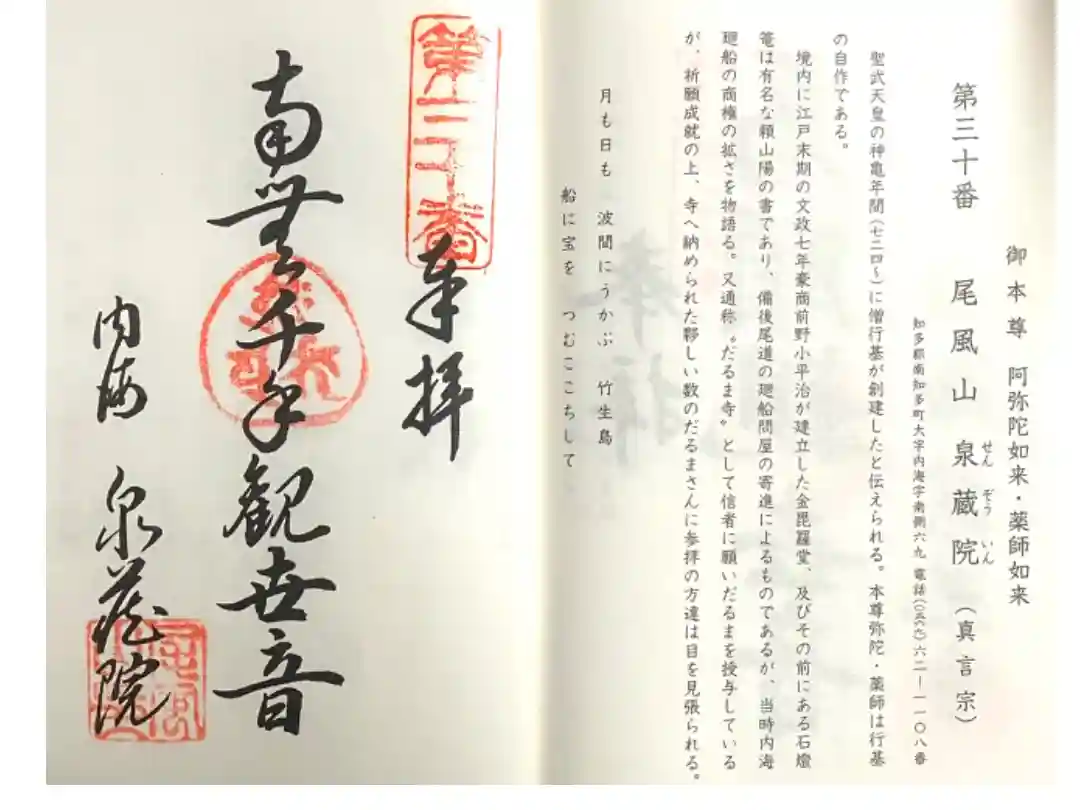 御本尊 阿弥陀如来・薬師如来
第三十番 尾風山 泉蔵院 (真言宗)
せん ぞう いん
知多郡南知多町大字内海字南側六九 電話(〇五六九)六二ー一一〇八番
聖武天皇の神亀年間(七二四〜)に僧行基が創建したと伝えられる。本尊弥陀・薬師は行基
の自作である。
境内に江戸末期の文政七年豪商前野小平治が建立した金毘羅堂、及びその前にある石燈
篭は有名な頼山陽の書であり、備後尾道の廻船問屋の寄進によるものであるが、当時内海
廻船の商権の拡さを物語る。又通称〝だるま寺〟として信者に願いだるまを授与している
が、祈願成就の上、寺へ納められた夥しい数のだるまさんに参拝の方達は目を見張られる。
月も日も 波間にうかぶ 竹生島
船に宝を つむここちして
第三十番
奉拝
南無千手観世音
内海 泉蔵院